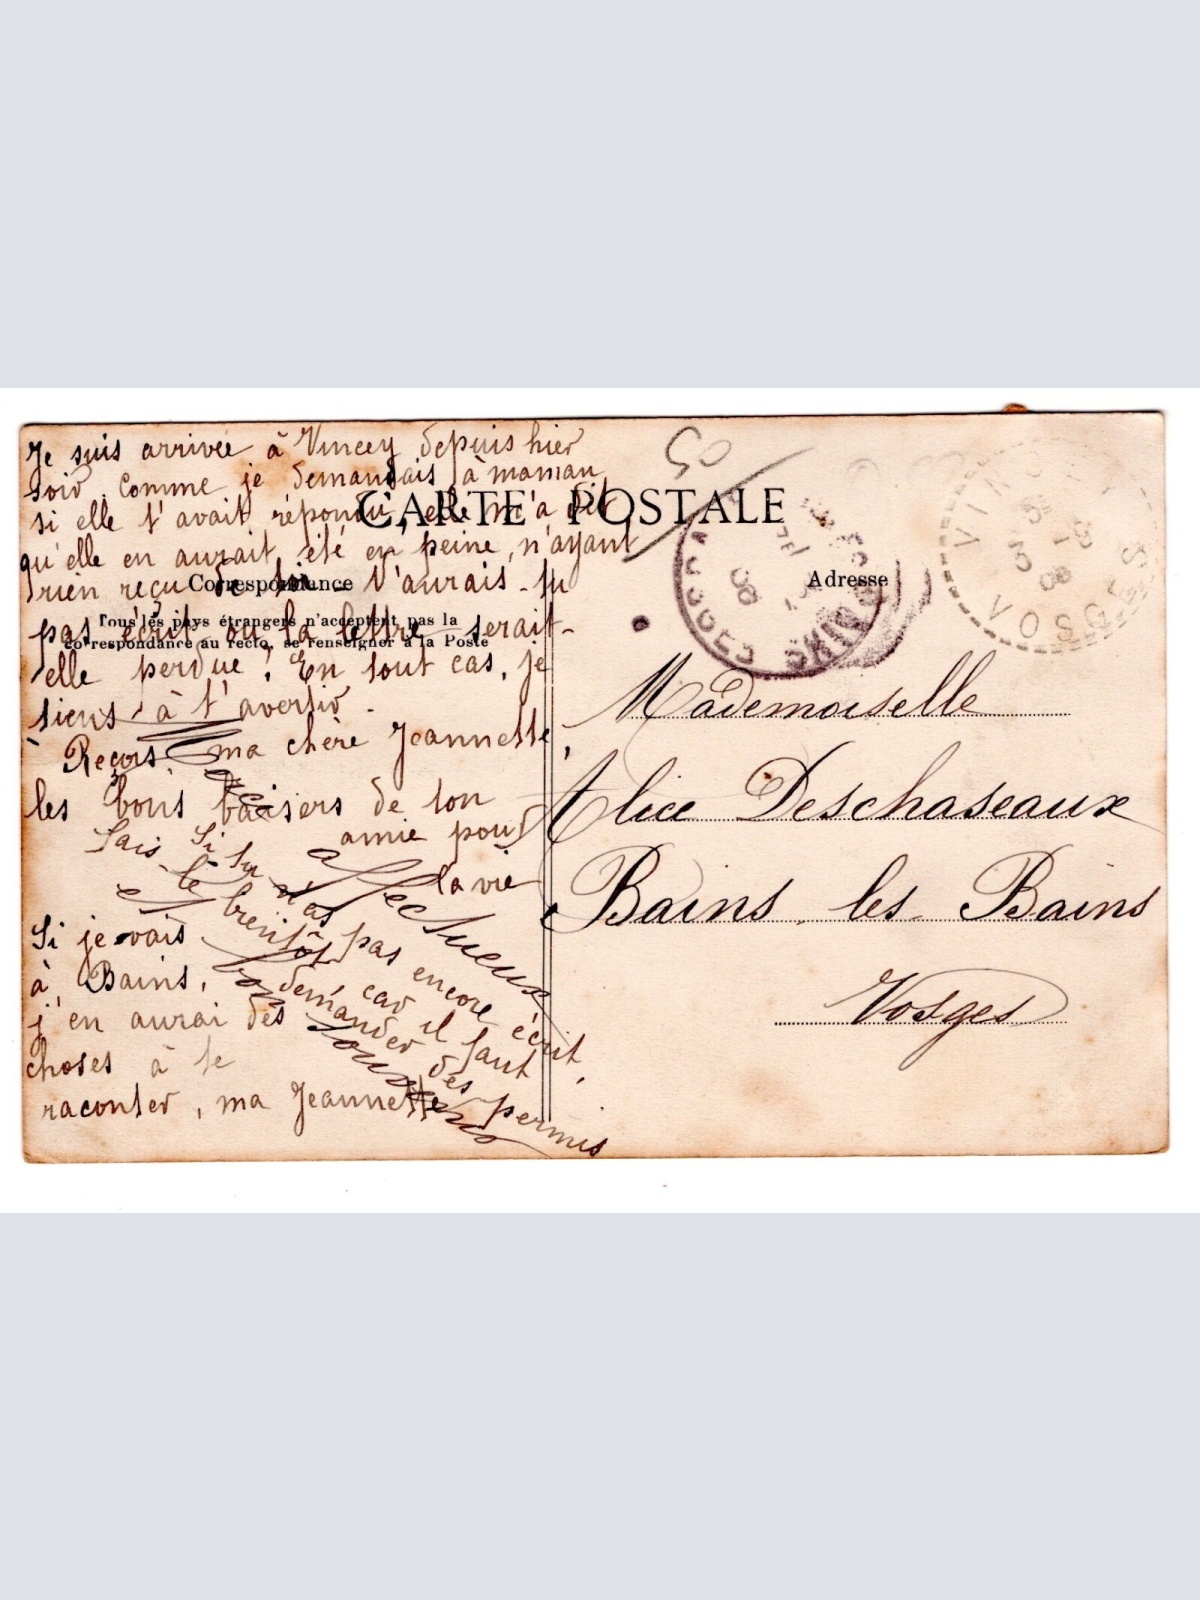 Je suis arrivée à Vincey depuis hier
soir, comme je demandais à maman
si elle t'avait répondu, elle m'a dit
qu'elle en aurait été en peine, n'ayant
rien reçu de toi. N'aurais-tu
pas écrit ou la lettre serait-
elle perdue ? En tout cas, je
tiens à t'avertir.
Reçois ma chère Jeannette,
les bons baisers de ton
amie pour
la vie
Si tu n'as pas encore écrit,
fais-le bientôt car il faut
demander des permis
affectueux
et bon souvenir
Si je vais
à Bains,
j'en aurai des
choses à te
raconter, ma Jeannette
CARTE POSTALE
Correspondance
Tous les pays étrangers n'acceptent pas la
correspondance au recto, se renseigner à la Poste
Adresse
VINCEY
VOSGES
08
Mademoiselle
Alice Deschaseaux
Bains les Bains
Vosges